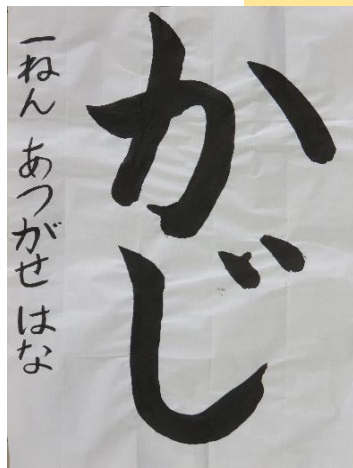 かじ
一ねん あつがせ はな